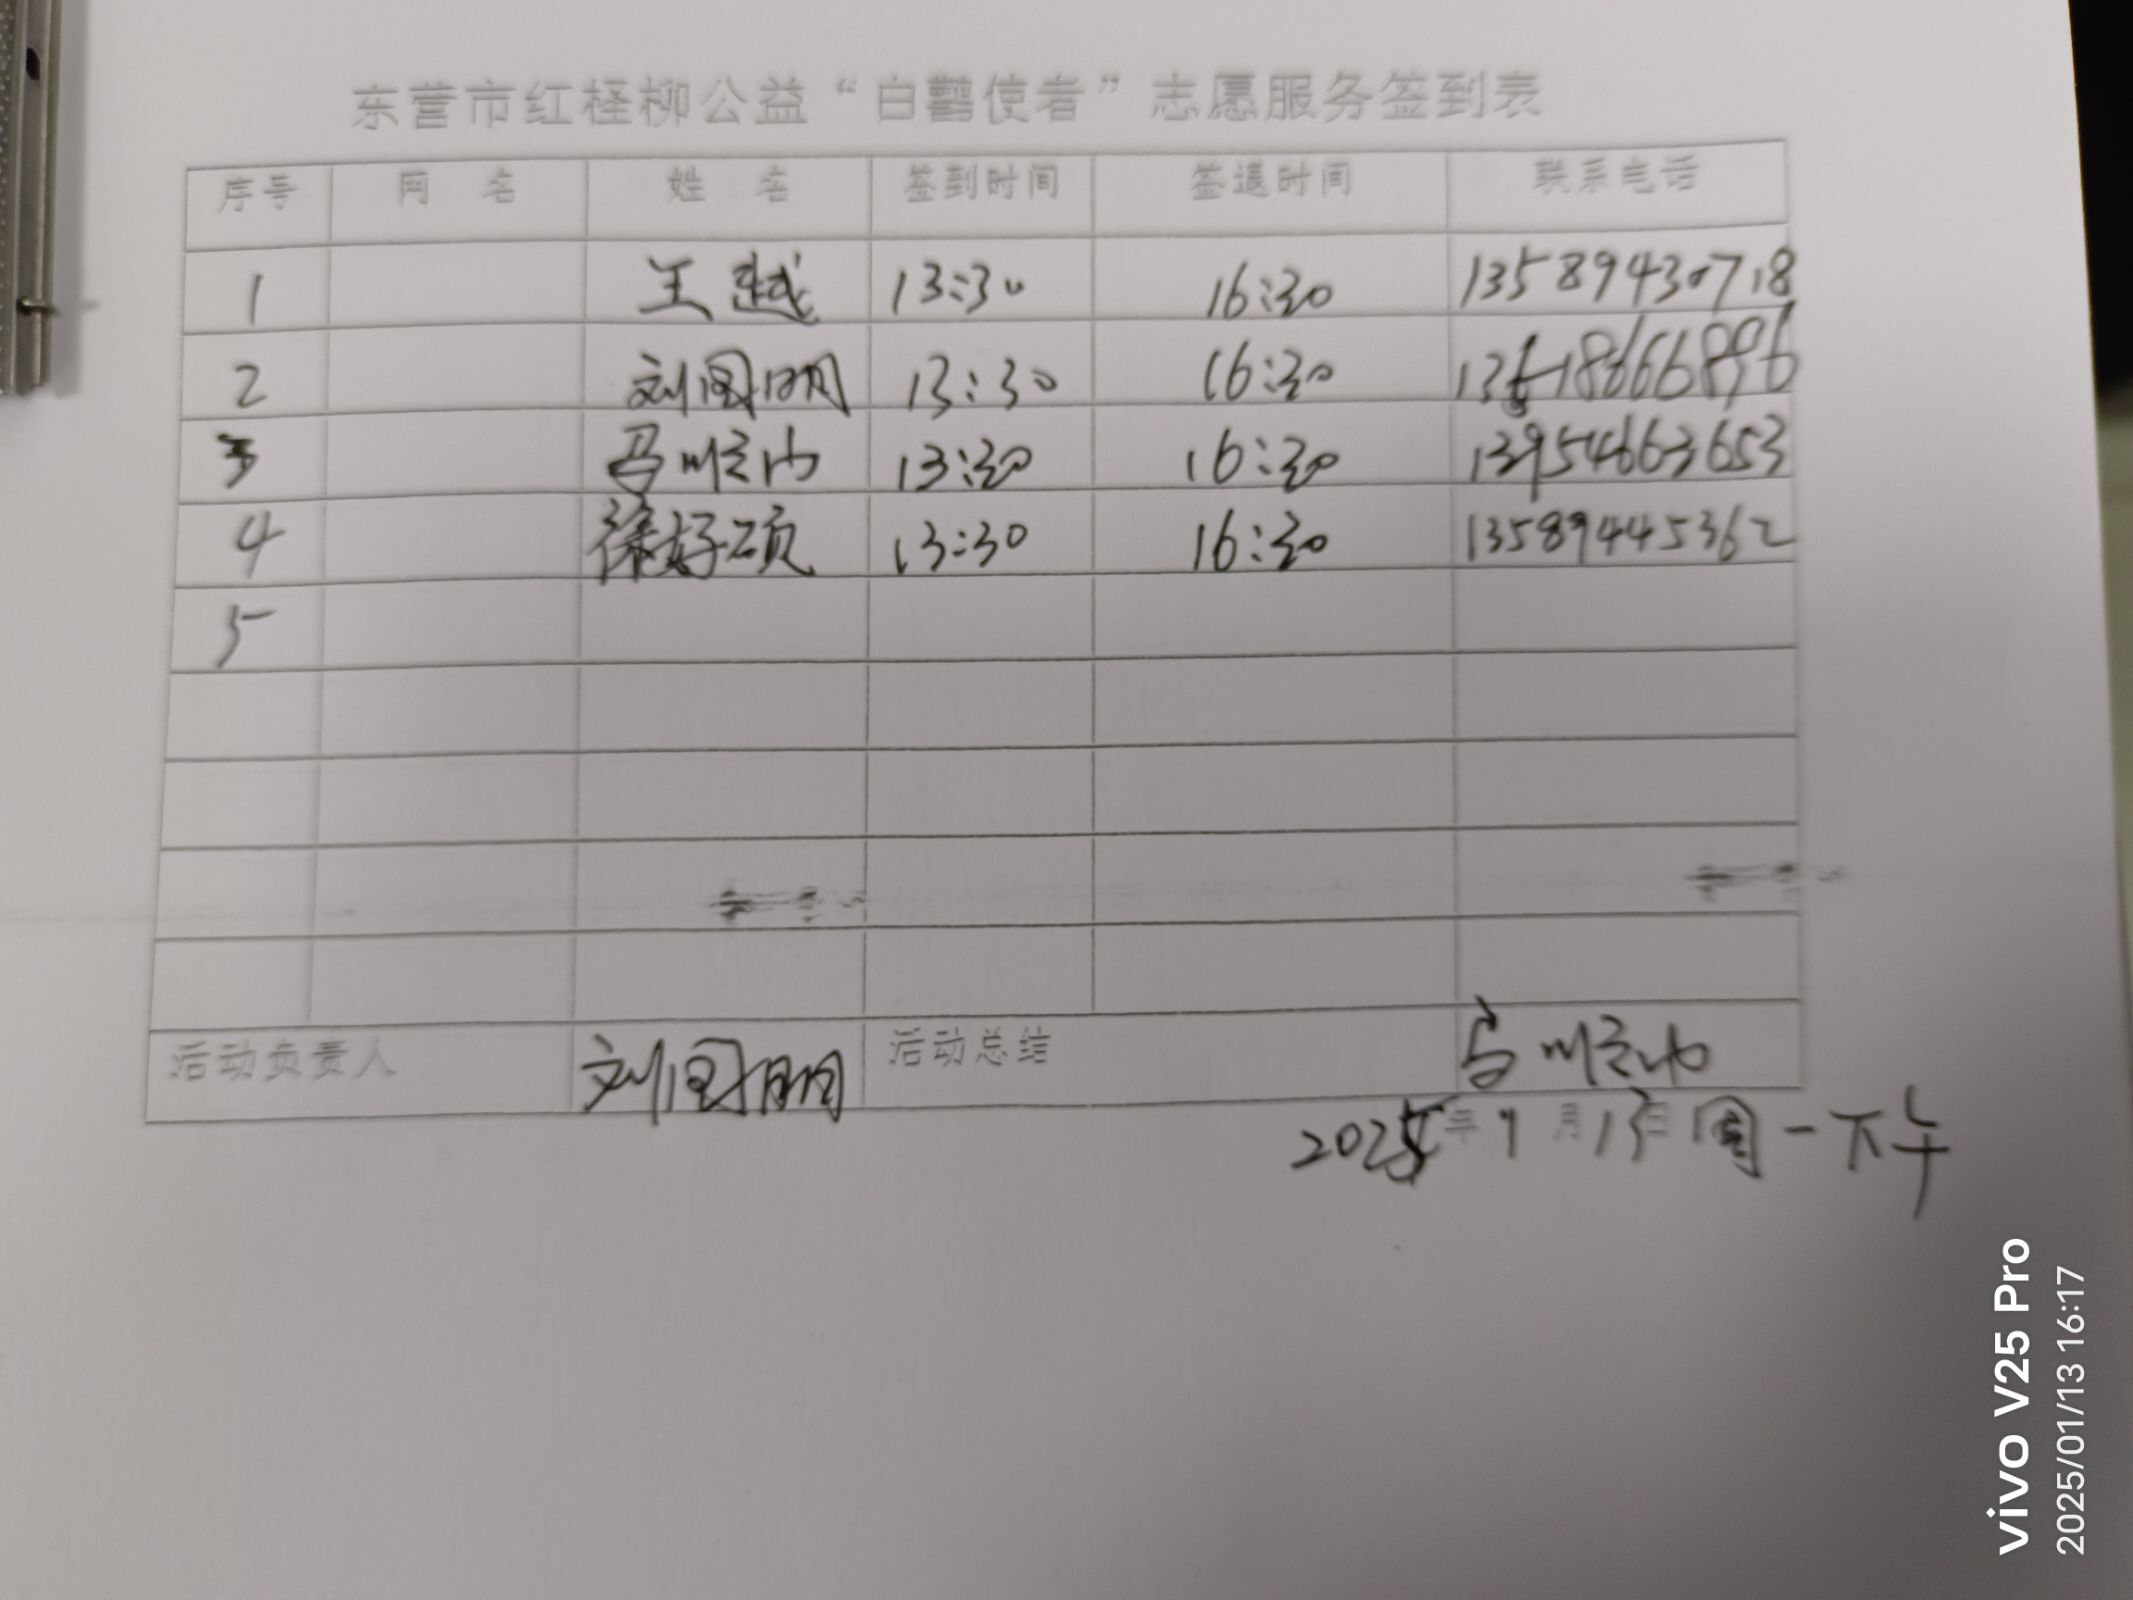 东营市红柽柳公益“白鹳使者”志愿服务签到表
序号 网 名 姓 名 签到时间 签退时间 联系电话
1 王越 13:30 16:30 13589430718
2 刘国明 13:30 16:30
3 马顺 13:30 16:30 13954663653
4 徐好硕 13:30 16:30 13589445362
5
活动负责人 刘国明 活动总结 马顺
2025年1月13日周一下午
vivo V25 Pro
2025/01/13 16:17